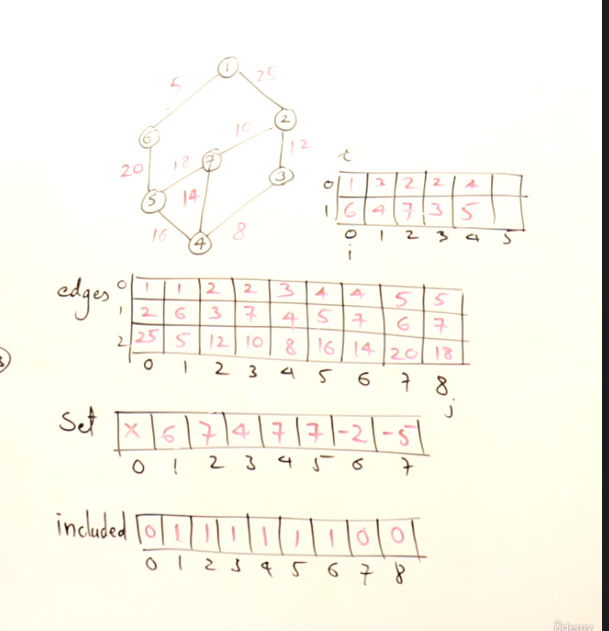 1
5
25
6
2
10
20
7
12
18
3
5
14
16
4
8
t
0 1 3 2 2 4
1 6 4 7 3 5
0 1 2 3 4 5
i
edges
0 1 1 2 2 3 4 4 5 5
1 2 6 3 7 4 5 7 6 7
2 25 5 12 10 8 16 14 20 18
0 1 2 3 4 5 6 7 8
j
Set X 6 7 4 7 7 -2 -5
0 1 2 3 4 5 6 7
included 0 1 1 1 1 1 1 0 0
0 1 2 3 4 5 6 7 8
ûdemy